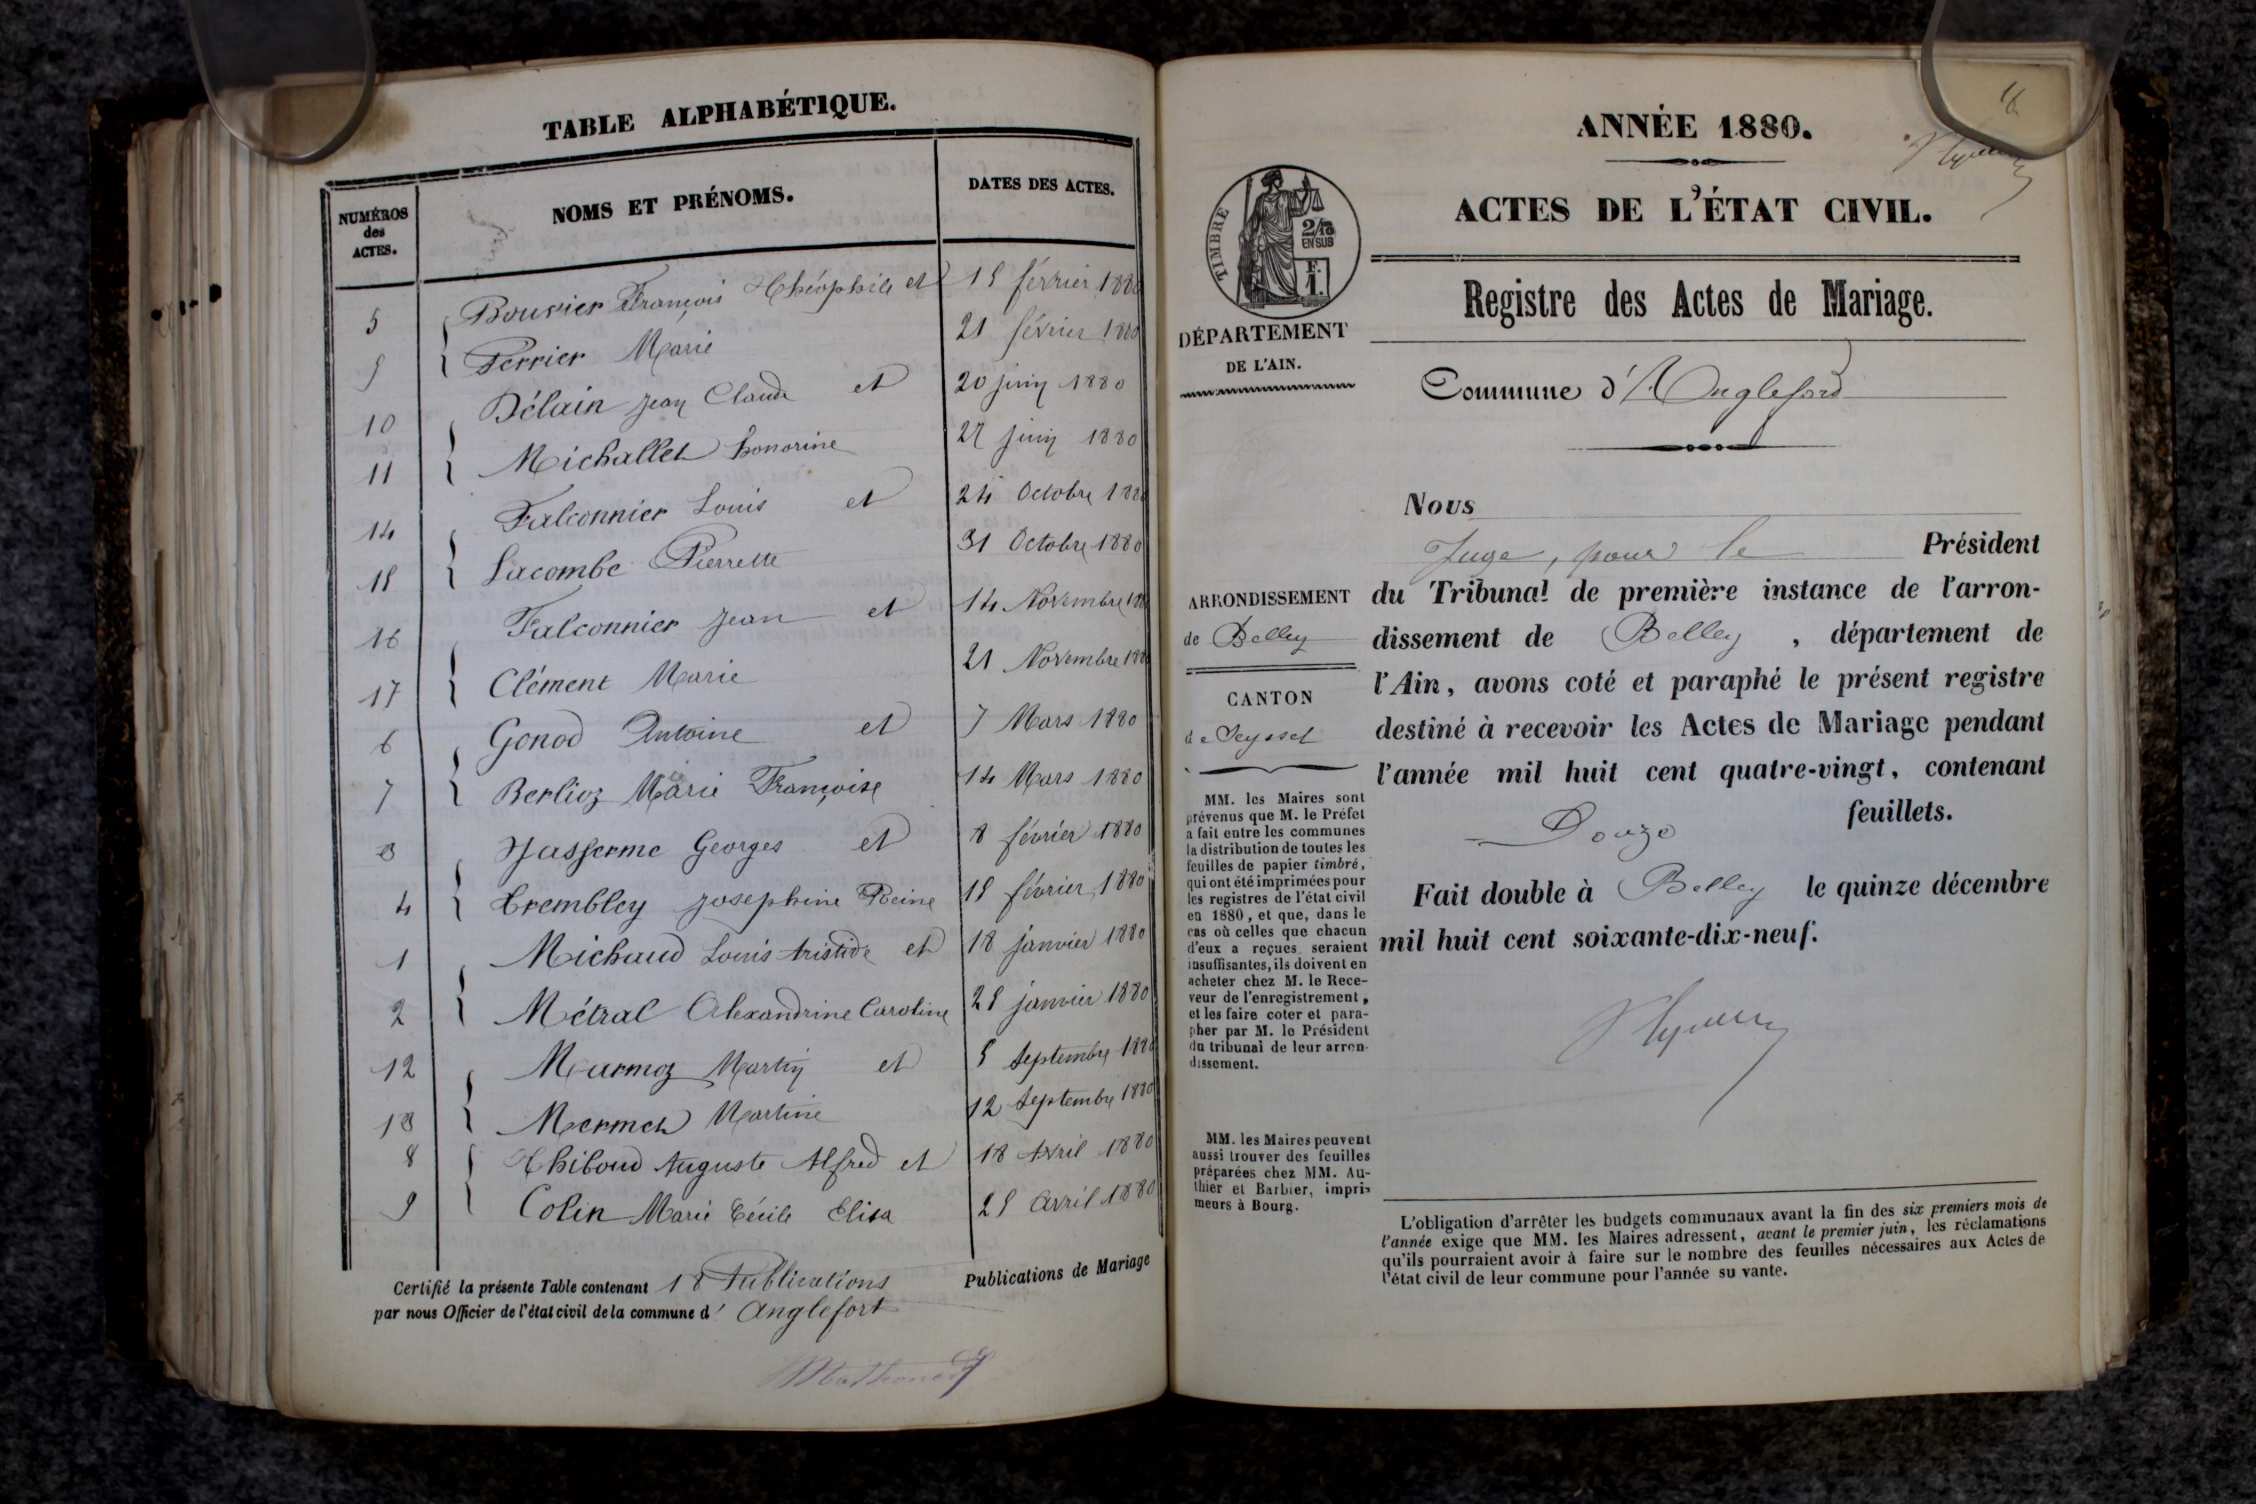 TABLE ALPHABÉTIQUE.
NUMÉROS
des
ACTES.
NOMS ET PRÉNOMS.
DATES DES ACTES.
5 Bouvier François Théophile et 15 février 1880
9 Perrier Marie 21 février 1880
10 Délain Jean Claude et 20 juin 1880
11 Michallet honorine 27 juin 1880
14 Falconnier Louis et 24 Octobre 1880
15 Lacombe Pierrette 31 Octobre 1880
16 Falconnier Jean et 14 Novembre 1880
17 Clément Marie 21 Novembre 1880
6 Gonod Antoine et 7 Mars 1880
7 Berlioz Marie Françoise 14 Mars 1880
3 Georges et 8 février 1880
4 Trembley Josephine Reine 15 février 1880
1 Michaud Louis Aristide et 18 janvier 1880
2 Métral Alexandrine Caroline 25 janvier 1880
12 Marmoz Martin et 5 Septembre 1880
13 Mermet Martine 12 Septembre 1880
8 Thiboud Auguste Alfred et 18 Avril 1880
9 Colin Marie Cécile Elisa 25 avril 1880
Certifié la présente Table contenant 18 Publications Publications de Mariage
par nous Officier de l'état civil de la commune d' Anglefort
ANNÉE 1880.
ACTES DE L'ÉTAT CIVIL.
Registre des Actes de Mariage.
TIMBRE
2/10
EN SUS
F.
1.
DÉPARTEMENT
DE L'AIN.
Commune d'Anglefort
Nous
Juge, pour le Président
du Tribunal de première instance de l'arron-
dissement de Belley, département de
l'Ain, avons coté et paraphé le présent registre
destiné à recevoir les Actes de Mariage pendant
l'année mil huit cent quatre-vingt, contenant
Douze feuillets.
Fait double à Belley le quinze décembre
mil huit cent soixante-dix-neuf.
ARRONDISSEMENT
de Belley
CANTON
de Seyssel
MM. les Maires sont
prévenus que M. le Préfet
a fait entre les communes
la distribution de toutes les
feuilles de papier timbré,
qui ont été imprimées pour
les registres de l'état civil
en 1880, et que, dans le
cas où celles que chacun
d'eux a reçues seraient
insuffisantes, ils doivent en
acheter chez M. le Rece-
veur de l'enregistrement,
et les faire coter et para-
pher par M. le Président
du tribunal de leur arron-
dissement.
MM. les Maires peuvent
aussi trouver des feuilles
préparées chez MM. Au-
thier et Barbier, impri-
meurs à Bourg.
L'obligation d'arrêter les budgets communaux avant la fin des six premiers mois de
l'année exige que MM. les Maires adressent, avant le premier juin, les réclamations
qu'ils pourraient avoir à faire sur le nombre des feuilles nécessaires aux Actes de
l'état civil de leur commune pour l'année su vante.